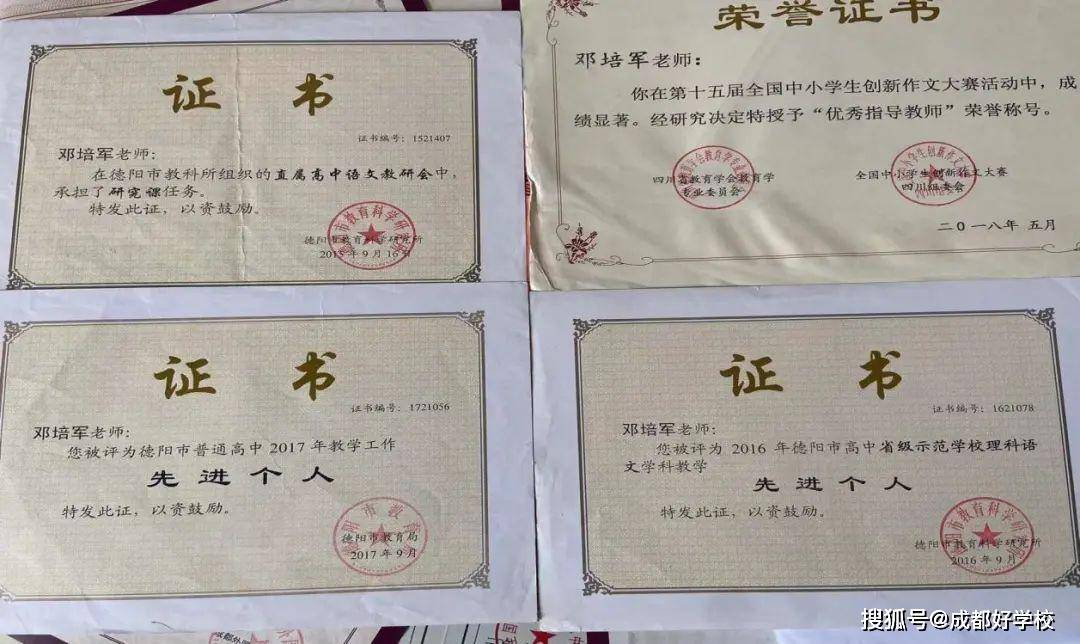 证 书
证书编号：1521407
邓培军老师：
在德阳市教科所组织的直属高中语文教研会中，
承担了研究课任务。
特发此证，以资鼓励。
德阳市教育科学研究所
2015年9月16日
荣誉证书
邓培军老师：
你在第十五届全国中小学生创新作文大赛活动中，成
绩显著。经研究决定特授予“优秀指导教师”荣誉称号。
四川省教育学会教育学
专业委员会
全国中小学生创新作文大赛
四川组委会
二〇一八年 五月
证 书
证书编号：1721056
邓培军老师：
您被评为德阳市普通高中2017年教学工作
先进个人
特发此证，以资鼓励。
德阳市教育局
2017年9月
证 书
证书编号：1621078
邓培军老师：
您被评为 2016 年德阳市高中省级示范学校理科语
文学科教学
先进个人
特发此证，以资鼓励。
德阳市教育科学研究所
2016年9月
搜狐号@成都好学校